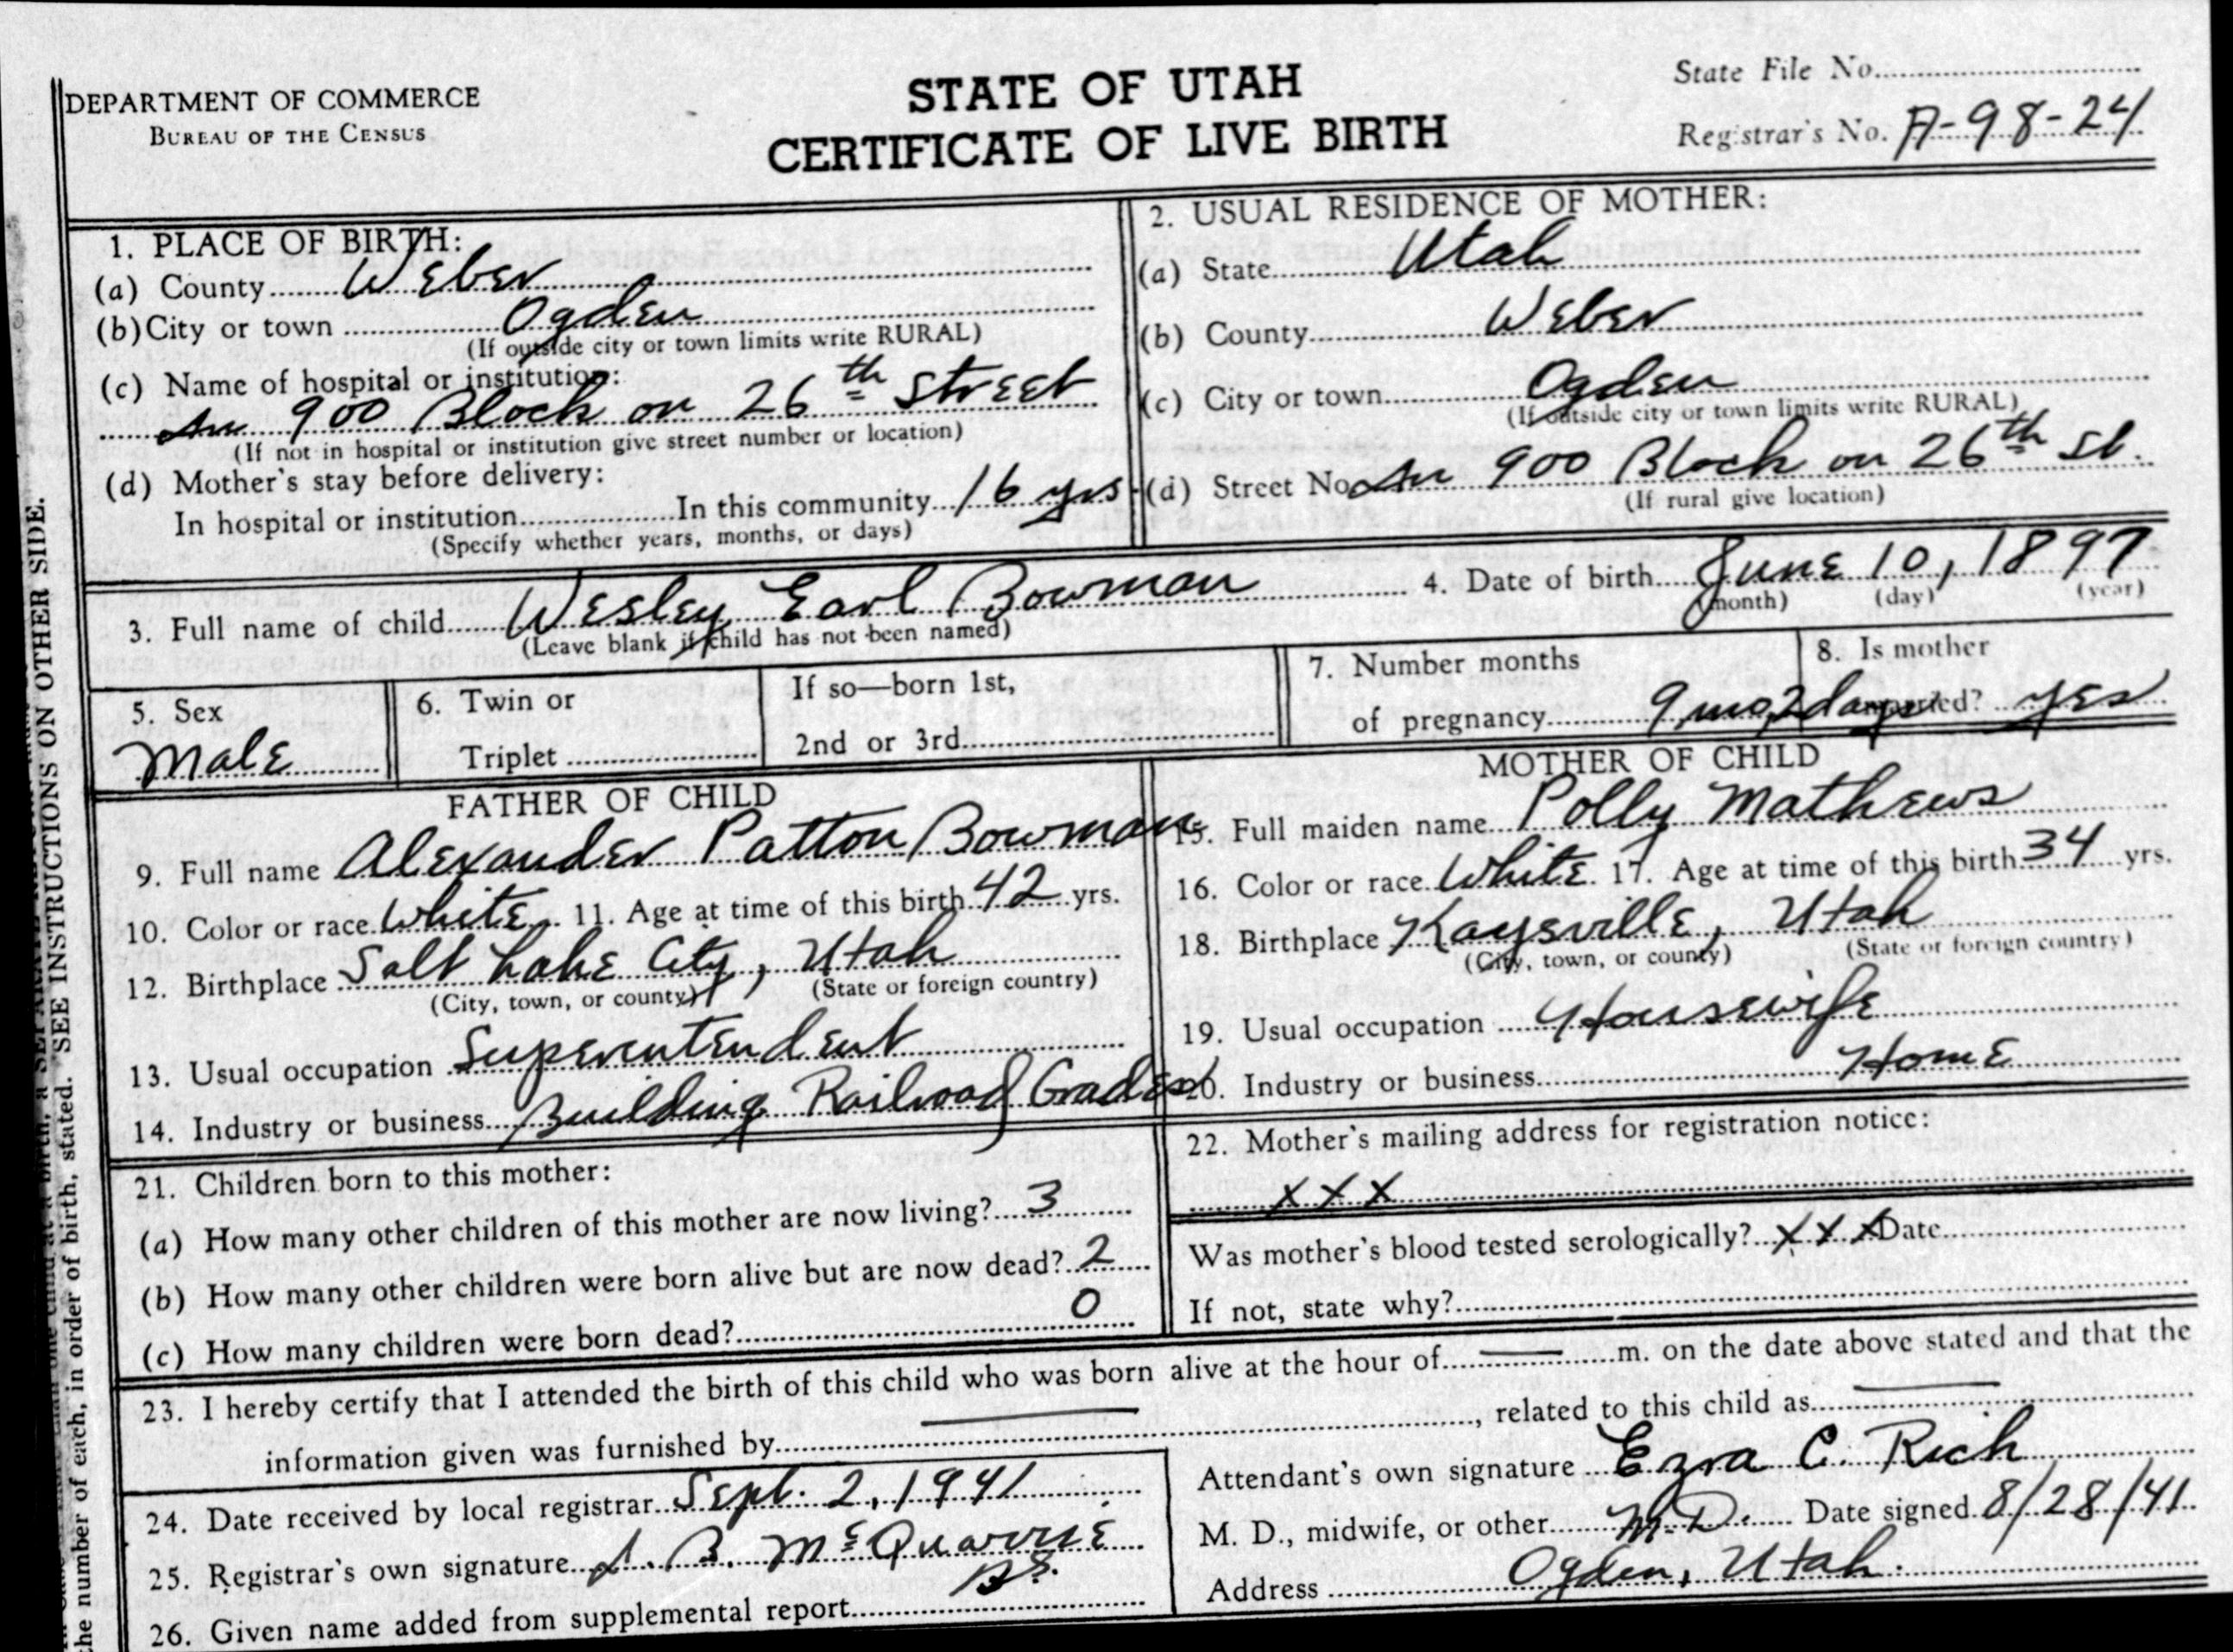 DEPARTMENT OF COMMERCE
BUREAU OF THE CENSUS
STATE OF UTAH
CERTIFICATE OF LIVE BIRTH
State File No.
Registrar's No. A-98-24
1. PLACE OF BIRTH:
(a) County Weber
(b) City or town Ogden
(If outside city or town limits write RURAL)
(c) Name of hospital or institution:
In 900 Block on 26th Street
(If not in hospital or institution give street number or location)
(d) Mother's stay before delivery:
In hospital or institution In this community 16 yrs
(Specify whether years, months, or days)
2. USUAL RESIDENCE OF MOTHER:
(a) State Utah
(b) County Weber
(c) City or town Ogden
(If outside city or town limits write RURAL)
(d) Street No. In 900 Block on 26th St.
(If rural give location)
3. Full name of child Wesley Earl Bowman
(Leave blank if child has not been named)
4. Date of birth June 10, 1897
(month) (day) (year)
5. Sex
Male
6. Twin or
Triplet
If so—born 1st,
2nd or 3rd
7. Number months
of pregnancy 9 mo, 2 days
8. Is mother
married? yes
FATHER OF CHILD
9. Full name Alexander Patton Bowman
10. Color or race White 11. Age at time of this birth 42 yrs.
12. Birthplace Salt Lake City, Utah
(City, town, or county) (State or foreign country)
13. Usual occupation Superentendent
14. Industry or business Building Railroad Grades
MOTHER OF CHILD
15. Full maiden name Polly Mathews
16. Color or race White 17. Age at time of this birth 34 yrs.
18. Birthplace Kaysville, Utah
(City, town, or county) (State or foreign country)
19. Usual occupation Housewife
20. Industry or business Home
21. Children born to this mother:
(a) How many other children of this mother are now living? 3
(b) How many other children were born alive but are now dead? 2
(c) How many children were born dead? 0
22. Mother's mailing address for registration notice:
X X X
Was mother's blood tested serologically? X X X Date
If not, state why?
23. I hereby certify that I attended the birth of this child who was born alive at the hour of — m. on the date above stated and that the
information given was furnished by —, related to this child as —
24. Date received by local registrar Sept. 2, 1941
25. Registrar's own signature J. B. McQuarrie
26. Given name added from supplemental report
Attendant's own signature Ezra C. Rich
M. D., midwife, or other M.D. Date signed 8/28/41
Address Ogden, Utah.
the number of each, in order of birth, stated. SEE INSTRUCTIONS ON OTHER SIDE.